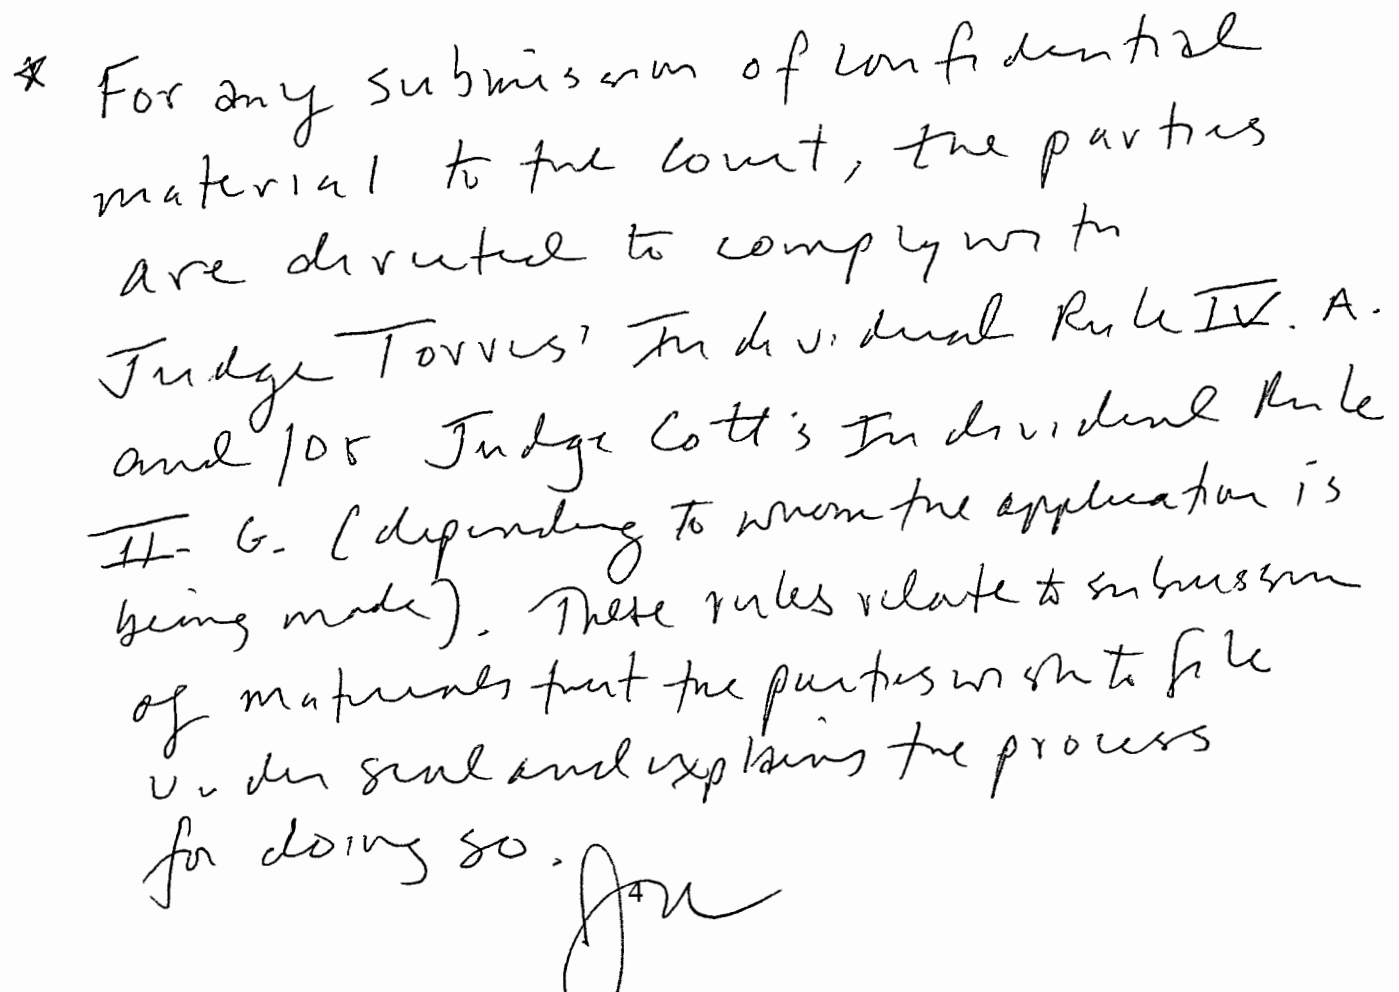 * For any submission of confidential
material to the Court, the parties
are directed to comply with
Judge Torres' Individual Rule IV. A.
and/or Judge Cott's Individual Rule
II. G. (depending to whom the application is
being made). These rules relate to submission
of materials that the parties wish to file
under seal and explains the process
for doing so.
4